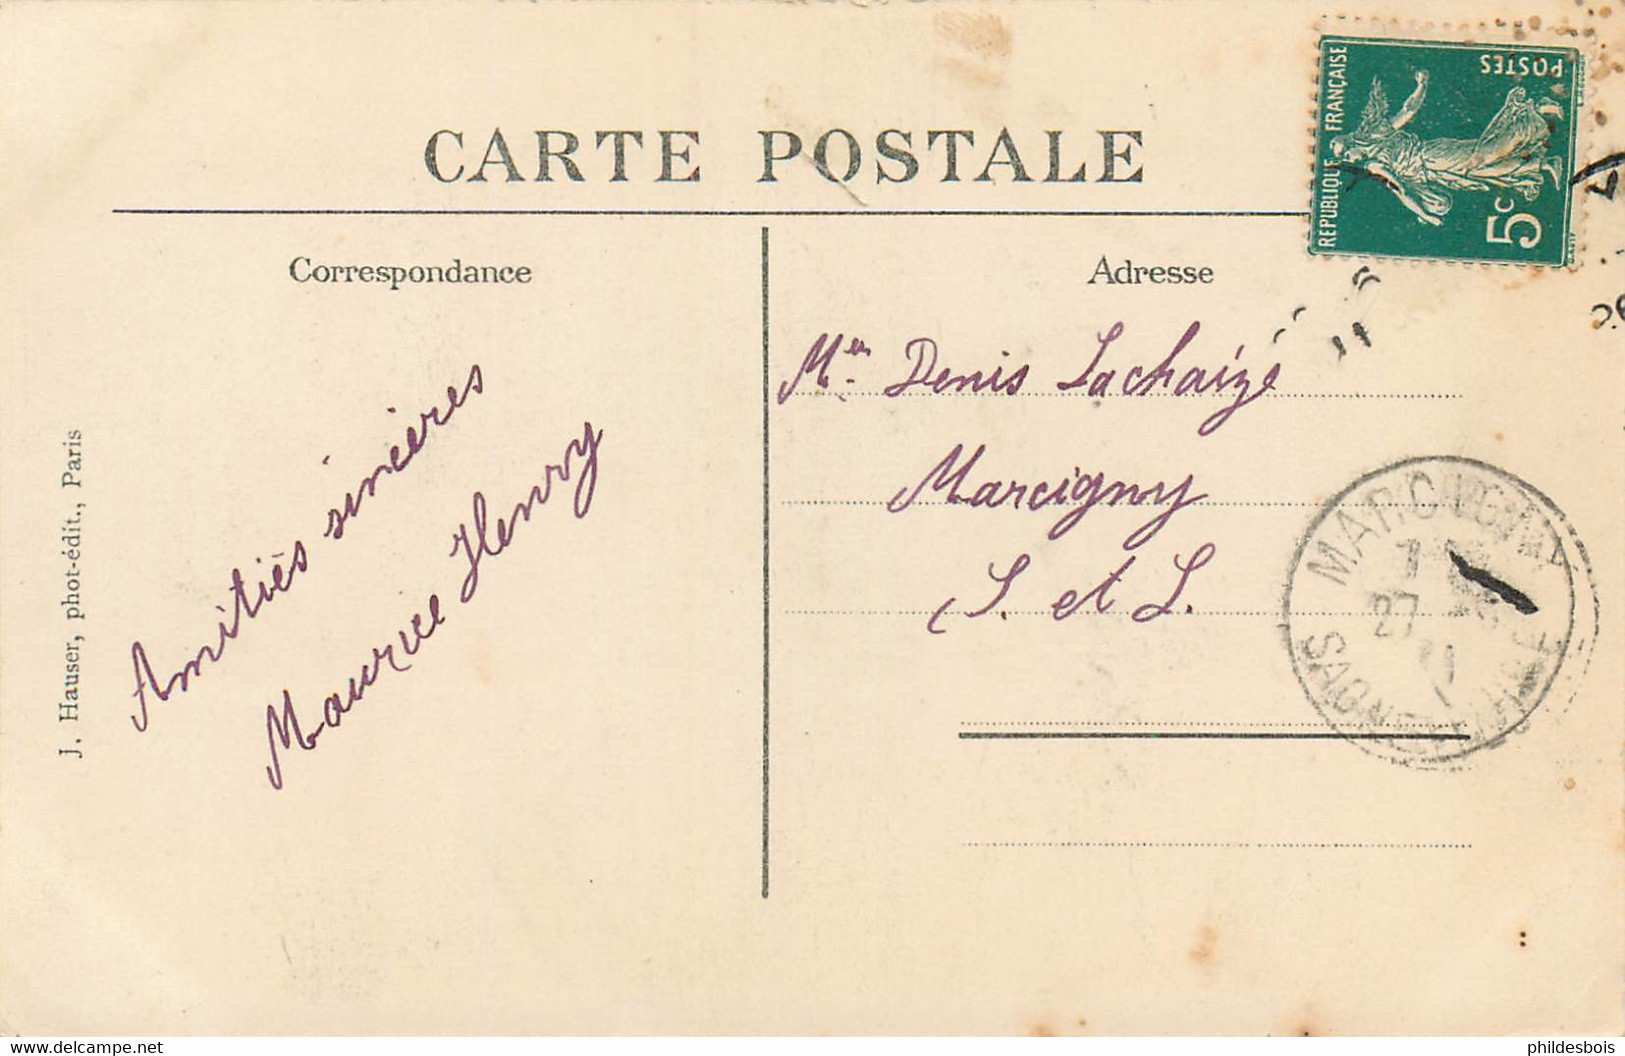 CARTE POSTALE
Correspondance
Adresse
REPUBLIQUE FRANÇAISE
POSTES
5c
Amitiés sincères
Maurice Henry
Denis Lachaize
Marcigny
S. et L.
MARCIGNY
27
SAONE
J. Hauser, phot-édit., Paris
www.delcampe.net
phildesbois